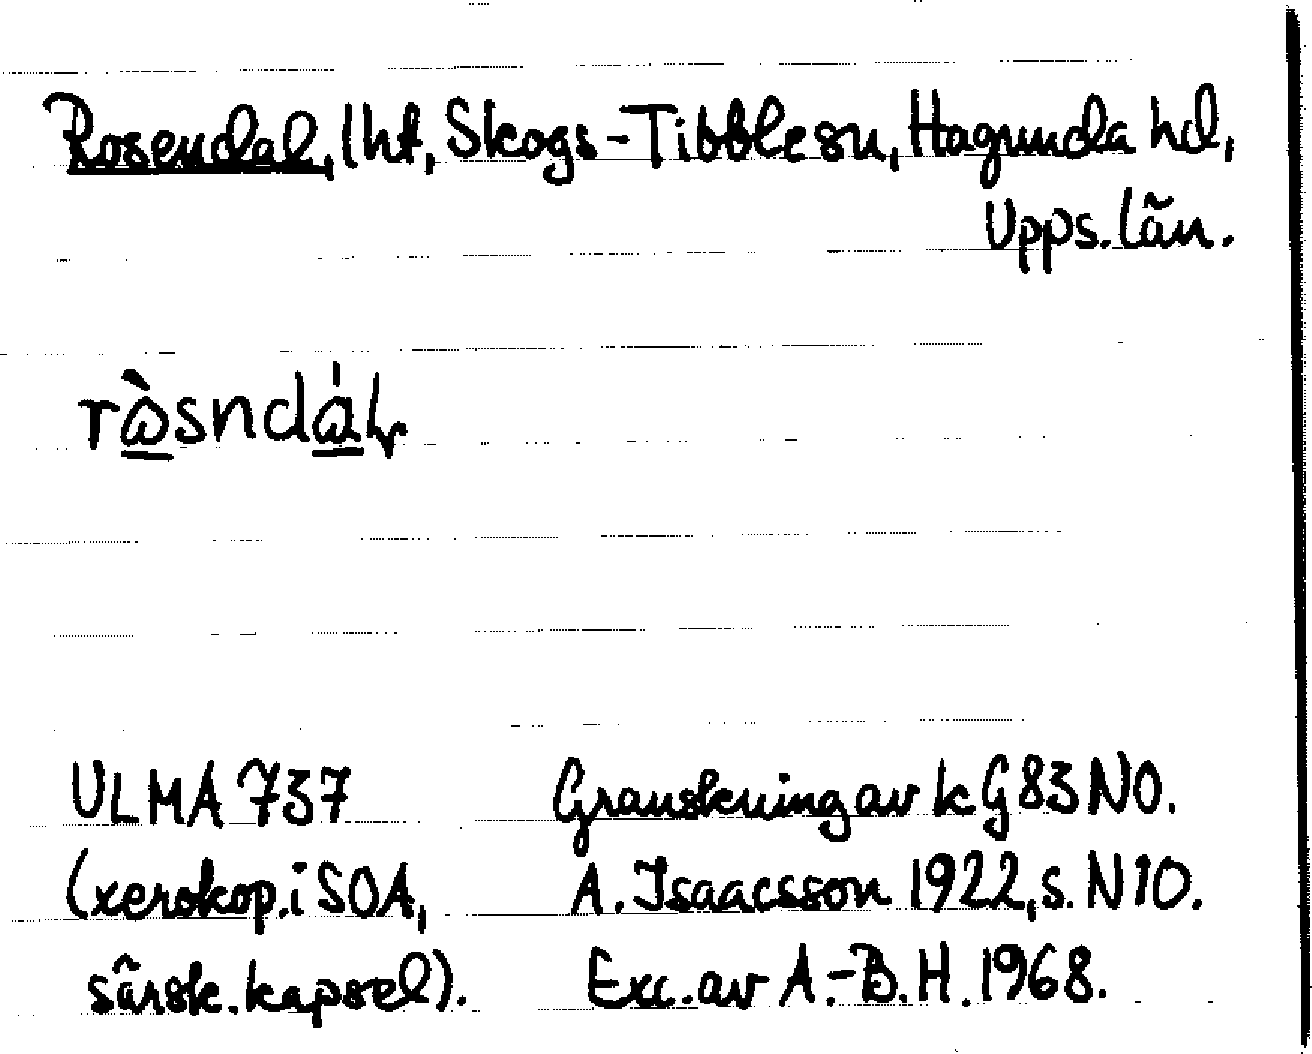 Rosendal, lht, Skogs-Tibble sn, Hagunda hd,
Upps. län.
ULMA 737
(xerokop. i SOA,
särsk. kapsel).
Granskning av k G 83 NO.
A. Isaacsson 1922, s. N 10.
Exc. av A.-B. H. 1968.